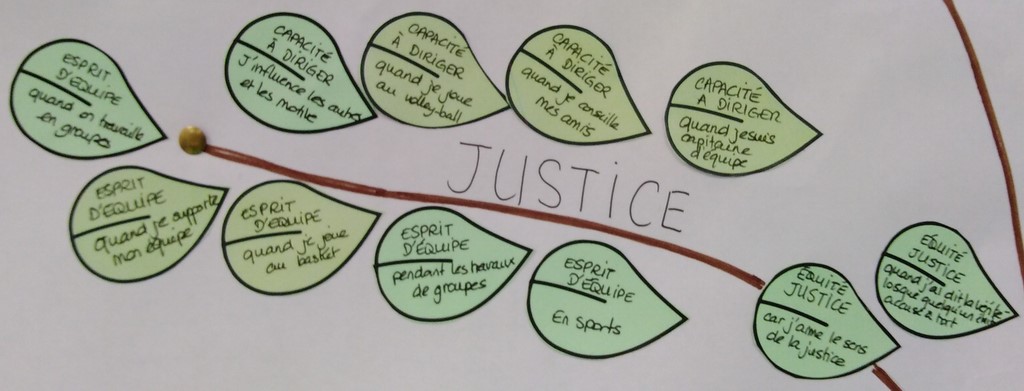 ESPRIT
D'EQUIPE
quand on travaille
en groupes
CAPACITÉ
À DIRIGER
J'influence les autres
et les motive
CAPACITÉ
À DIRIGER
quand je joue
au volley-ball
CAPACITÉ
À DIRIGER
quand je conseille
mes amis
CAPACITÉ
A DIRIGER
quand je suis
capitaine
d'équipe
JUSTICE
ESPRIT
D'EQUIPE
quand je supporte
mon équipe
ESPRIT
D'EQUIPE
quand je joue
au basket
ESPRIT
D'EQUIPE
pendant les travaux
de groupes
ESPRIT
D'EQUIPE
En sports
ÉQUITÉ
JUSTICE
car j'aime le sens
de la justice
ÉQUITÉ
JUSTICE
quand j'ai dit la vérité
losque quelqu'un
accusé à tort